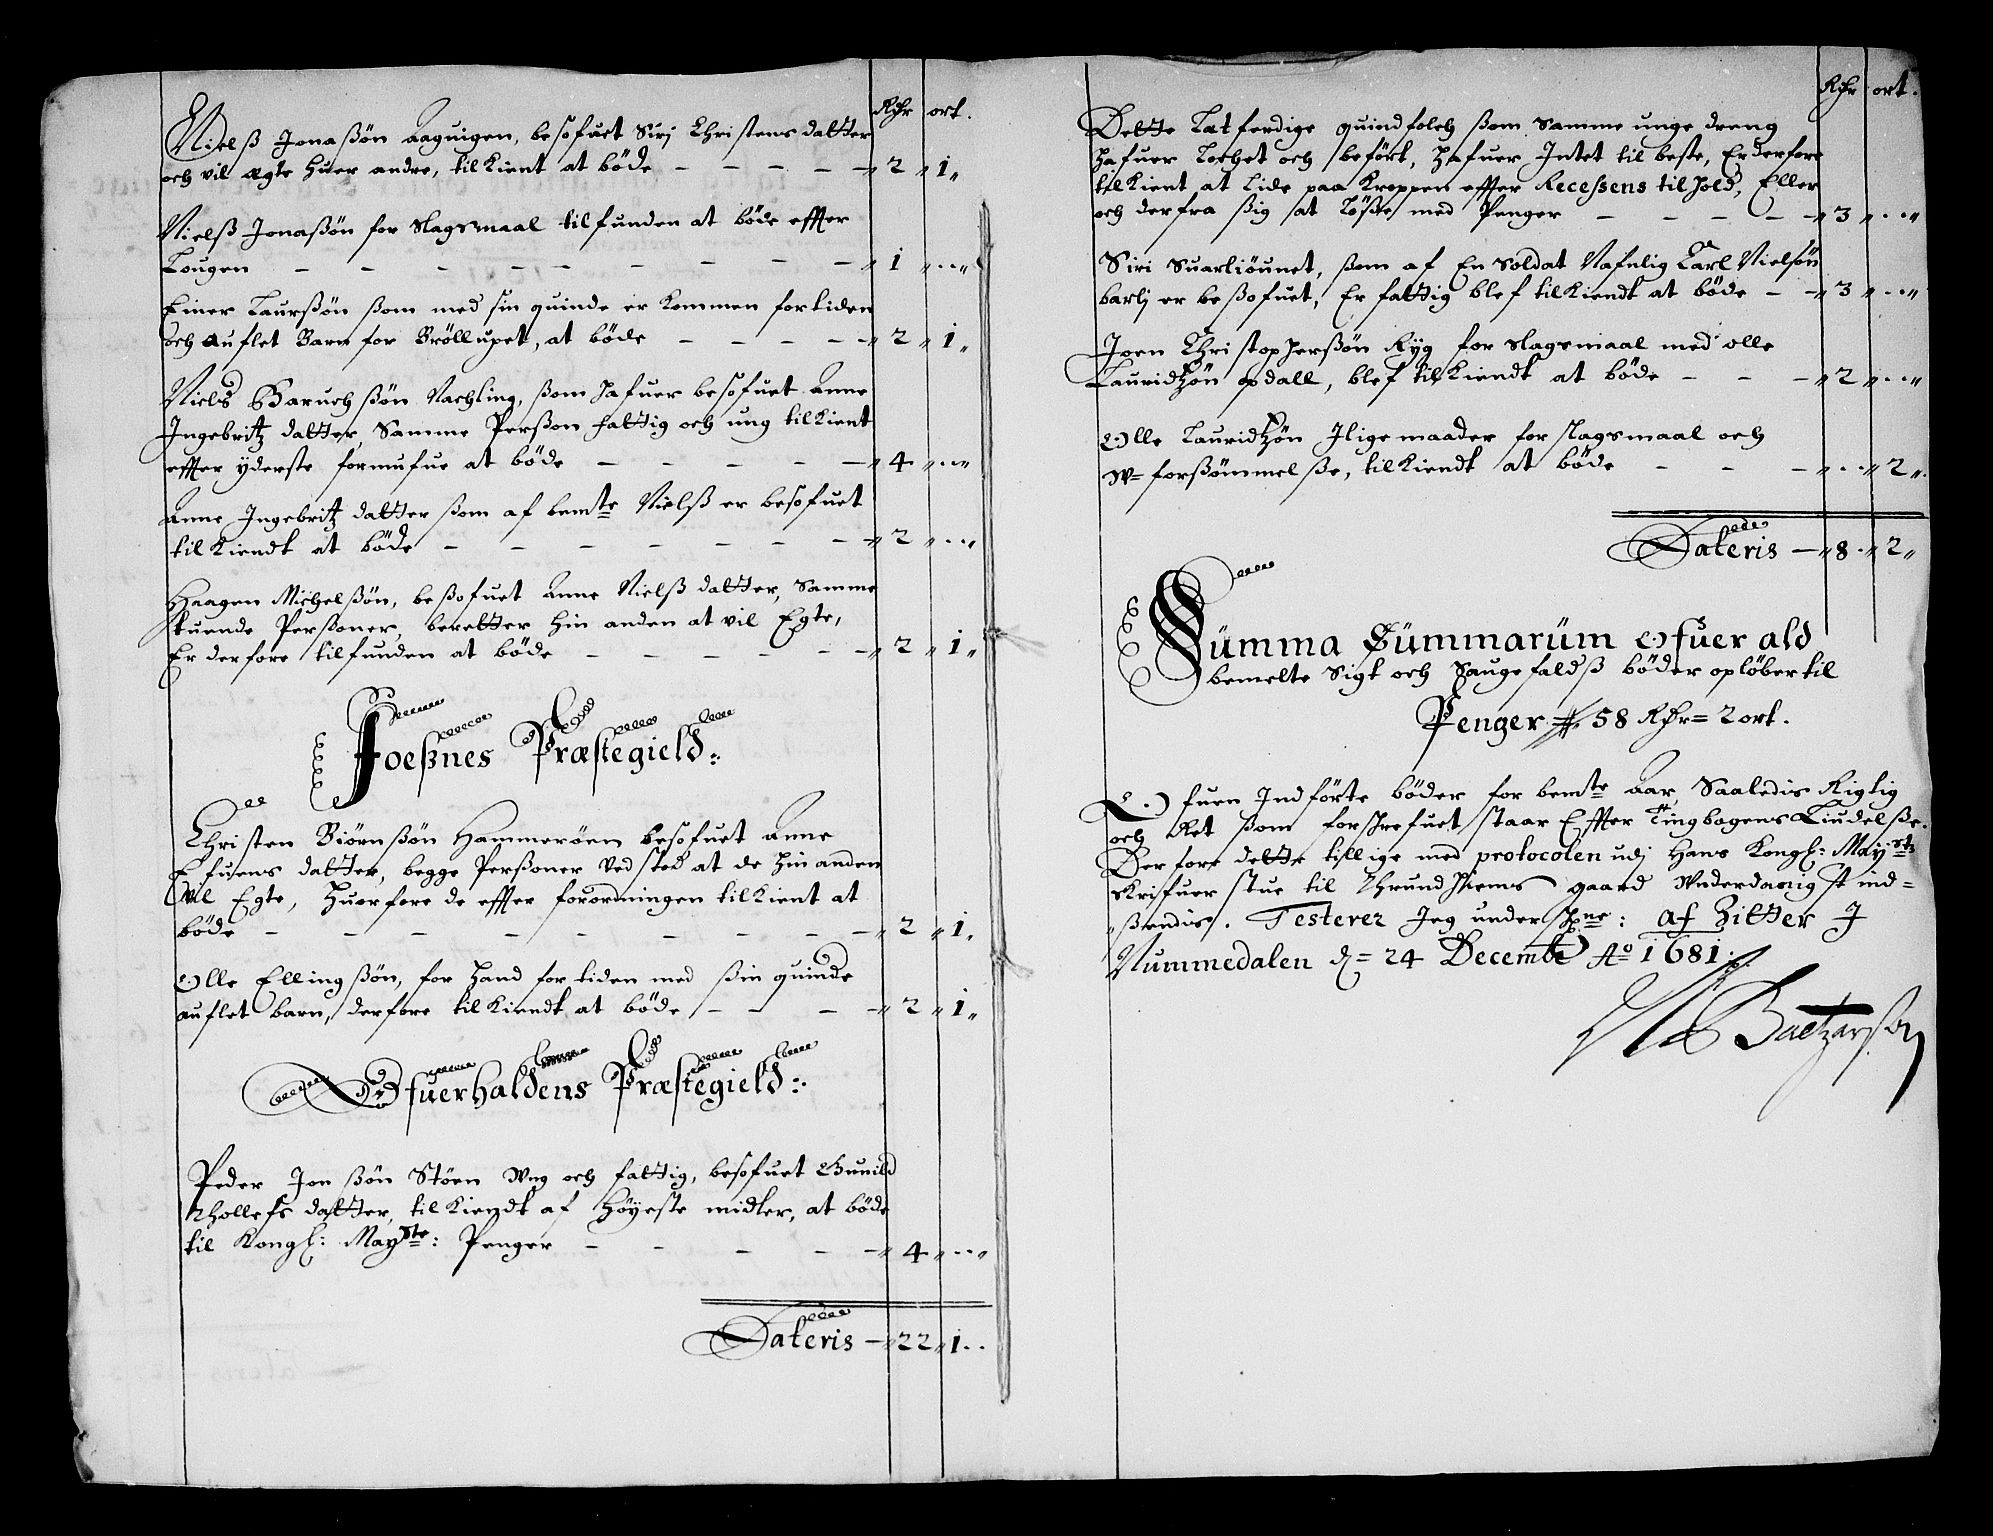 Rdr ort.
Nielß Jonaßøn Aaguigen, besofuet Sirj Christens datter
och vil ægte huer andre, tilkient at bøde — — — — — 2 „ 1 „
Nielß Jonaßøn for slagsmaal tilfunden at bøde effter
Lougen — — — — — — — — — „ 1 „ .. „
Einer Laurßøn ßom med sin quinde er kommen for tiden
och auflet Barn for Brøllupet, at bøde — — — — — „ 2 „ 1 „
Niels Baruchßøn Nachling, ßom hafuer besofuet Anne
Ingebritz datter, Samme Perßon fattig och ung tilkient
effter yderste formufue at bøde — — — — — „ 4 „ .. „
Anne Ingebritz datter ßom af bemte Nielß er besofuet
tilkiendt at bøde — — — — — — — „ 2 „ .. „
Haagen Michelßøn, beßofuet Anne Nielß datter, Samme
tuende Perßoner, beretter hin anden at vil Egte,
Er derfore tilfunden at bøde — — — — — „ 2 „ 1 „
Foeßnes Præstegield:
Christen Biørnßøn Hammerøen besofuet Anne
Efuens datter, begge Perßoner vedstod at de hin anden
Vil Egte, huorfore de effter forordningen tilkient at
bøde — — — — — — — — — „ 2 „ 1 „
Olle Ellingßøn, for hand for tiden med ßin quinde
auflet barn, derfore tilkiendt at bøde — — — — „ 2 „ 1 „
Ofuerhaldens Præstegield:
Peder Jonßøn Støen Ung och fattig, besofuet Gunild
Thollefs datter, tilkiendt af høyeste midler, at bøde
til Kongl: Mayste: Penger — — — — — „ 4 „ .. „
Lateris — „ 22 „ 1 ..
Rdr ort.
Dette Letferdige quindfolch ßom Samme unge dreng
hafuer lochet och beført, hafuer Intet til beste, Er derfore
tilkient at lide paa Kroppen effter Recessens tilhold, Eller
och derfra ßig at løße med Penger — — — — „ 3 „ .. „
Siri Suarliøunet, ßom af En Soldat Nafnlig Carl Nielsøn
barlj er beßofuet, Er fattig blef tilkiendt at bøde — — „ 3 „ .. „
Joen Christopherßøn Ryg for slagsmaal med olle
Lauridtzøn opdall, blef tilkiendt at bøde — — — „ 2 „ .. „
Olle Lauridtzøn Ilige maader for slagsmaal och
W= forßømmelße, tilkiendt at bøde — — — „ .. „ 2 „
Lateris — „ 8 „ 2 „
Summa Summarum Ofuer ald
bemelte Sigt och Saugefaldß bøder opløber til
Penger # 58 Rdr = 2 ort.
Ofuen Indførte bøder for bemte Aar, Saaledis Rigtig
och Ret ßom forschrefuet staar Effter Tingbogens Liudelße.
Derfore dette tillige med protocolen udj Hans Kongl: Maysts
skrifuer stue til Thrundhiems gaard Underdanigst ind=
ßendis. Testerer Jeg under: af Zitter J
Nummedalen d= 24 Decembr Ao 1681.
Baltzarsøn